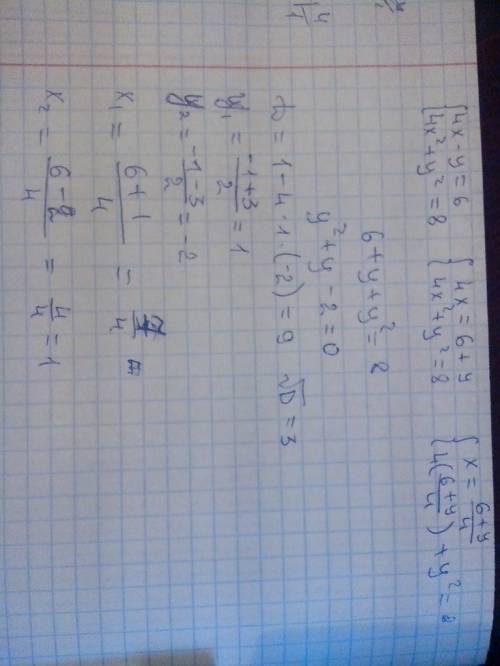 {4x-y=6 {4x=6+y {x=\frac{6+y}{4}
{4x²+y²=8 {4x²+y²=8 {4(\frac{6+y}{4})+y²=8
6+y+y²=8
y²+y-2=0
D=1-4·1·(-2)=9 √D=3
y₁=\frac{-1+3}{2}=1
y₂=\frac{-1-3}{2}=-2
x₁=\frac{6+1}{4}=\frac{7}{4}=
x₂=\frac{6-2}{4}=\frac{4}{4}=1